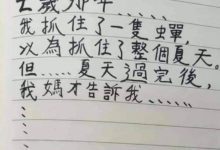 七歲那年......
我抓住了一隻蟬,
以為抓住了整個夏天.
但......夏天過完後,
我媽才告訴我......